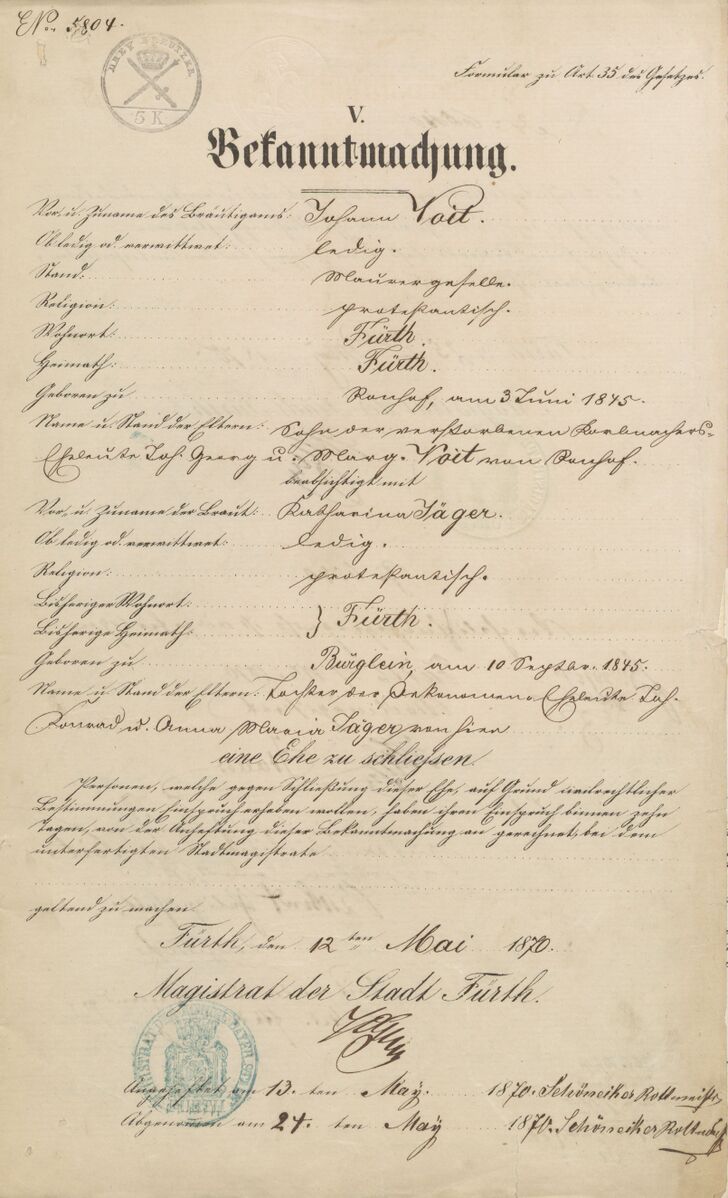 ENo. 5804.
DREY KREUTZER
3 K.
Formular zu Art 35 des Gesetzes.
V.
Bekanntmachung.
Vor- u. Zuname des Bräutigams: Johann Voit.
Ob ledig od. verwittwet: ledig.
Stand: Maurergeselle.
Religion: protestantisch.
Wohnort: Fürth.
Heimath: Fürth.
Geboren zu Ronhof, am 3 Juni 1845.
Name u. Stand der Eltern: Sohn der verstorbenen Korbmachers-
Eheleute Joh. Georg u. Marg. Voit von Ronhof.
beabsichtigt mit
Vor- u. Zuname der Braut: Katharina Jäger.
Ob ledig od. verwittwet: ledig.
Religion: protestantisch.
Bisheriger Wohnort:
Bisherige Heimath: } Fürth.
Geboren zu Bürglein, am 10 Septbr. 1845.
Name u. Stand der Eltern: Tochter der Oekonomen-Eheleute Joh.
Konrad u. Anna Maria Jäger von hier
eine Ehe zu schliessen.
Personen, welche gegen Schließung dieser Ehe, auf Grund civilrechtlicher
Bestimmungen Einspruch erheben wollen, haben ihren Einspruch binnen zehn
Tagen, von der Anheftung dieser Bekanntmachung an gerechnet, bei dem
unterfertigten Stadtmagistrate
geltend zu machen.
Fürth, den 12ten Mai 1870.
Magistrat der Stadt Fürth.
Angeheftet am 13. ten May. 1870. Schöneiker Rottmeister
Abgenommen am 24. ten May 1870. Schöneiker